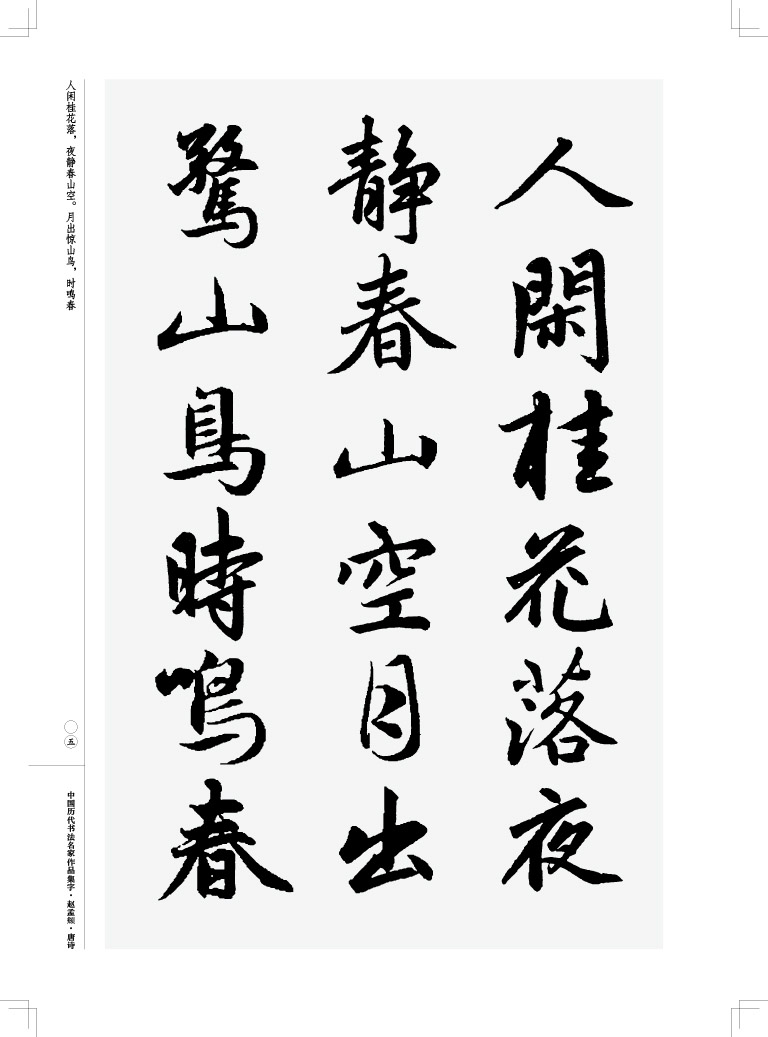 人閑桂花落夜
静春山空月出
驚山鳥時鳴春
人闲桂花落，夜静春山空。月出惊山鸟，时鸣春
〇五
中国历代书法名家作品集字·赵孟頫·唐诗